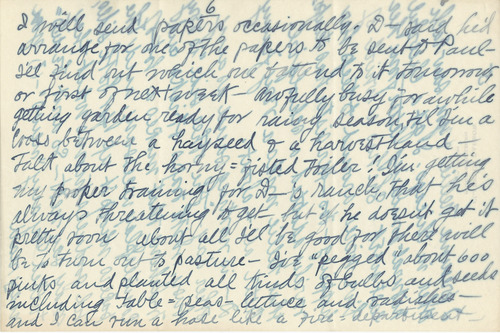 6
I will send papers occasionally. D— said he'd
arrange for one of the papers to be sent to Paul—
I'll find out which one & attend to it tomorrow
or first of next week— Awfully busy for awhile
getting garden ready for rainy season til I'm a
cross between a hayseed & a harvest hand—
Talk about the horny=fisted toiler! I'm getting
my proper training for D—'s ranch that he's
always threatening to get but if he doesn't get it
pretty soon about all I'll be good for there will
be to turn out to pasture— I've "pegged" about 600
pinks and planted all kinds of bulbs and seeds
including table=peas—lettuce and radishes—
and I can run a hose like a fire=department—